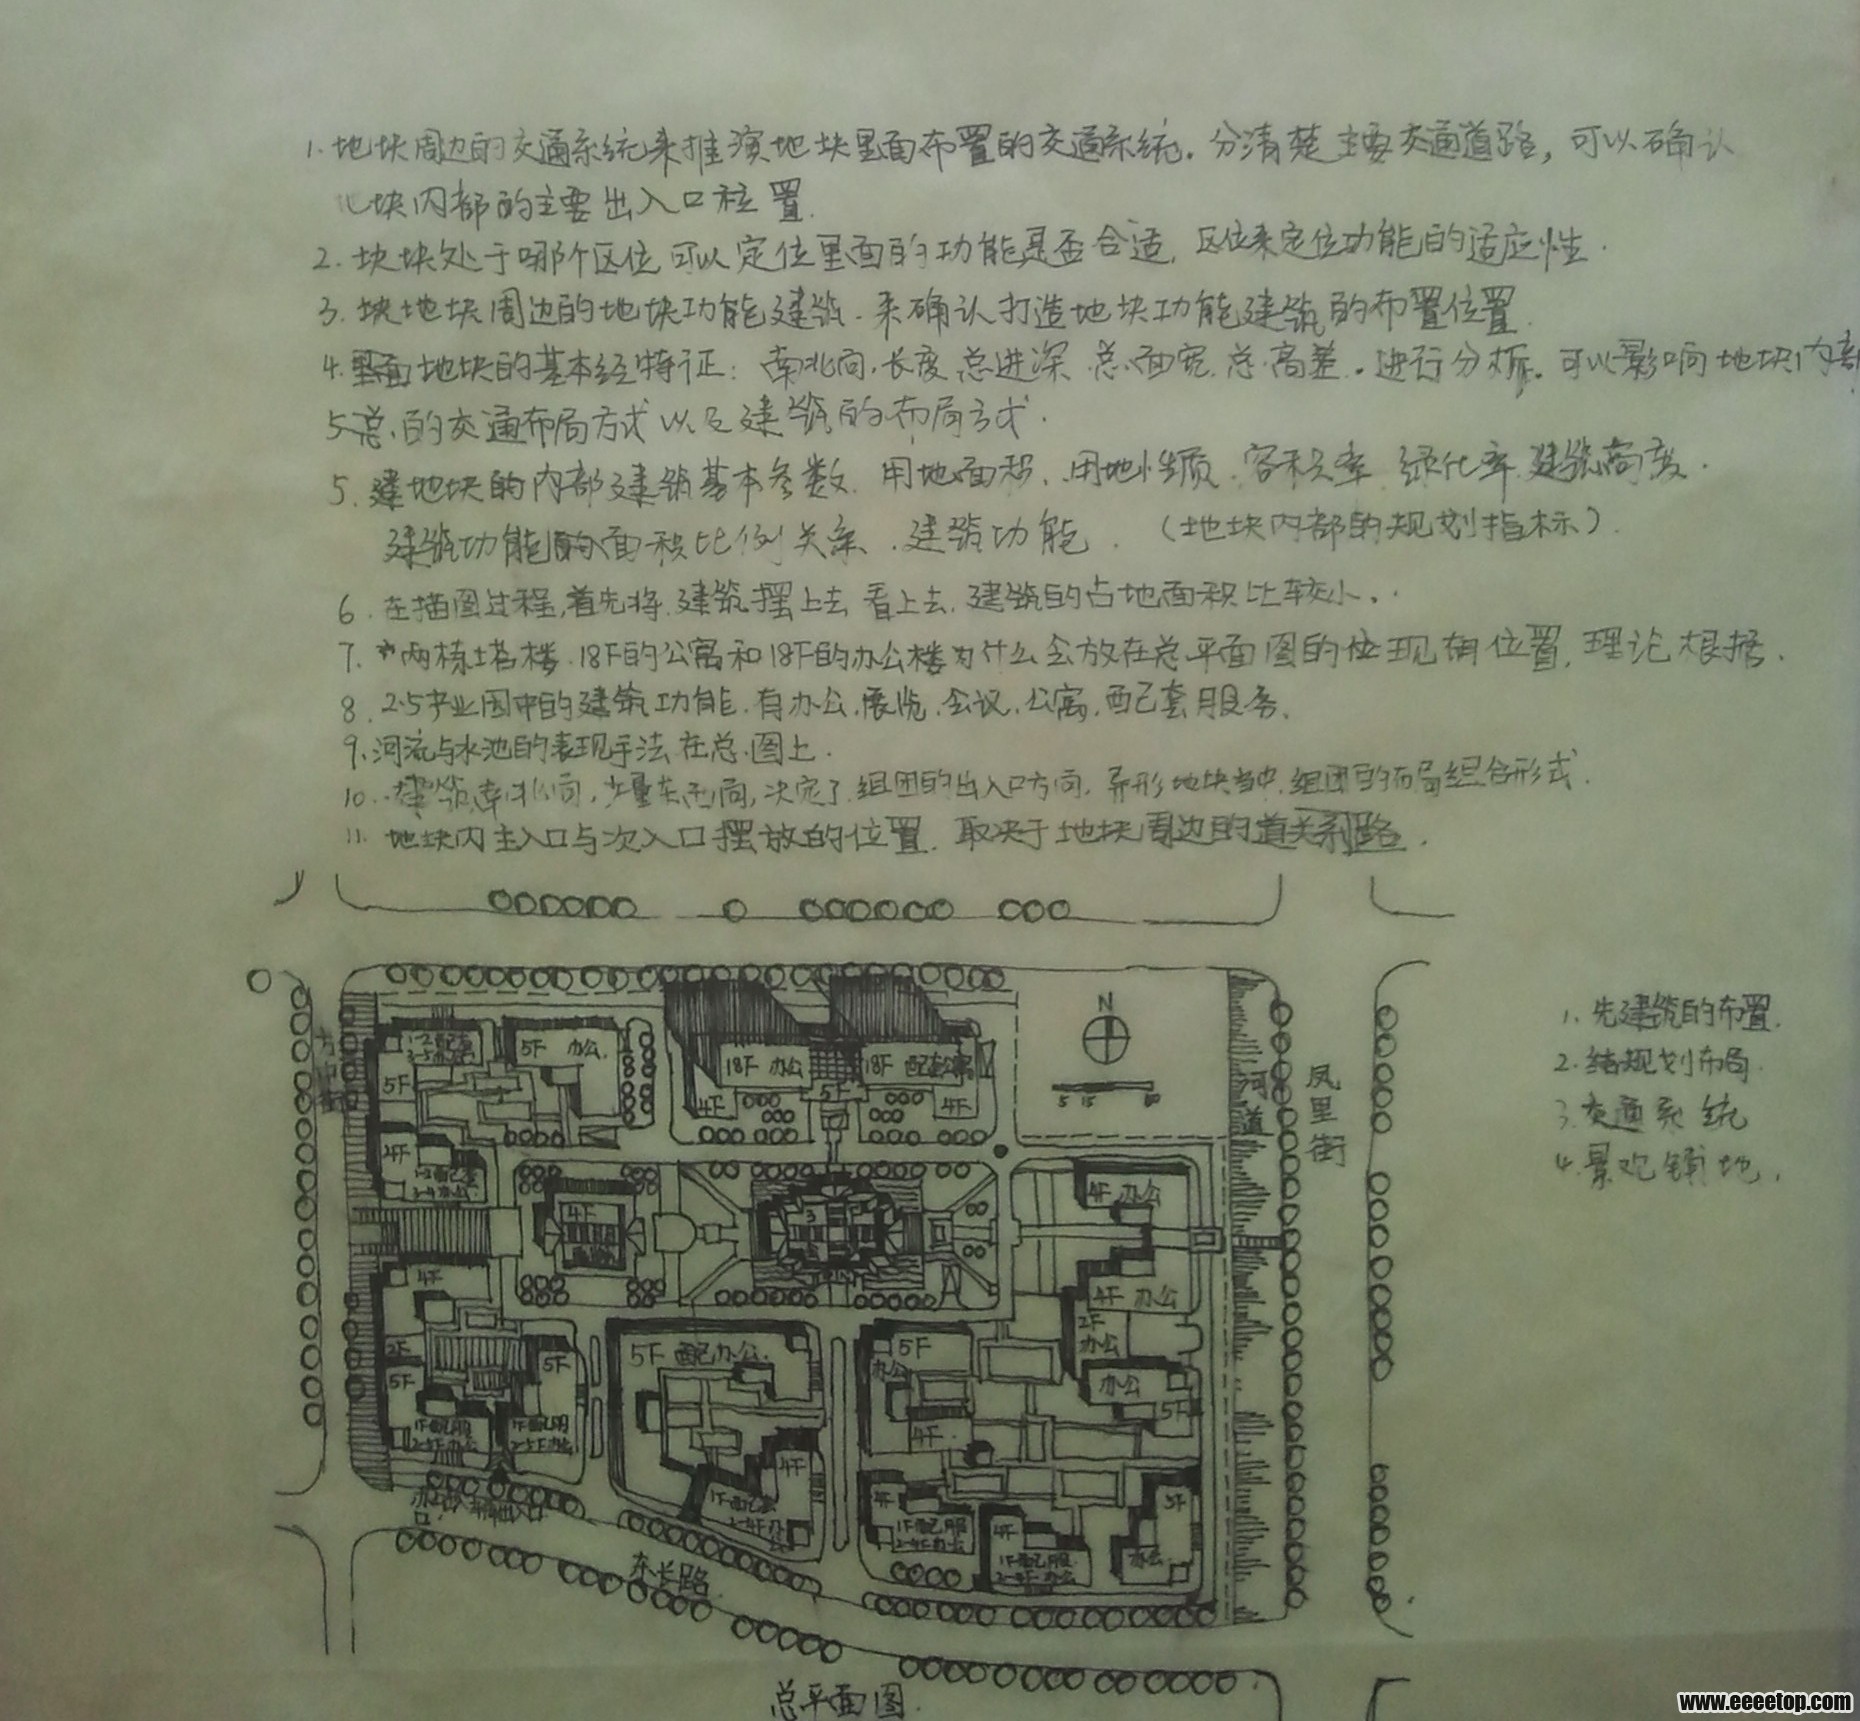 1. 地块周边的交通系统来推演地块里面布置的交通系统. 分清楚主要交通道路, 可以确认
地块内部的主要出入口位置.
2. 块块处于哪个区位, 可以定位里面的功能是否合适, 区位来定位功能的适应性.
3. 块地块周边的地块功能建筑. 来确认打造地块功能建筑的布置位置.
4. 里面地块的基本经特征: 南北向, 长度 总进深 总面宽 总高差. 进行分析. 可以影响地块内部
5 总的交通布局方式以及建筑的布局方式.
5. 建地块的内部建筑基本参数. 用地面积、用地性质. 容积率 绿化率 建筑高度.
建筑功能的面积比例关系、建筑功能. (地块内部的规划指标).
6. 在描图过程, 首先将 建筑摆上去 看上去, 建筑的占地面积比较小.
7. 两栋塔楼. 18F的公寓和18F的办公楼为什么会放在总平面图的位现有位置, 理论根据.
8. 2.5产业园中的建筑功能. 有办公. 展览. 会议. 公寓. 配套服务.
9. 河流与水池的表现手法 在总图上.
10. 建筑南北向, 少量东西向, 决定了 组团的出入口方向, 异形地块当中, 组团的布局组合形式.
11. 地块内主入口与次入口摆放的位置. 取决于地块周边的道关系路.
1. 先建筑的布置.
2. 结规划布局.
3. 交通系统
4. 景观铺地.
N
5 15
凤里街
河道
5F 办公.
18F 办公
18F 配套公寓
5F
4F
4F
5F
4F
4F 办公
4F
4F 办公
4F
2F
办公
5F 配办公.
5F
办公
2F
5F
5F
办公
5F
4F
4F
1F配服
2-5F办公
1F配服
2-5F办公
4F
1F配服
2-4F办公
4F
1F配服
2-4F办公
5F
办公
东长路
总平面图.
www.eeeetop.com